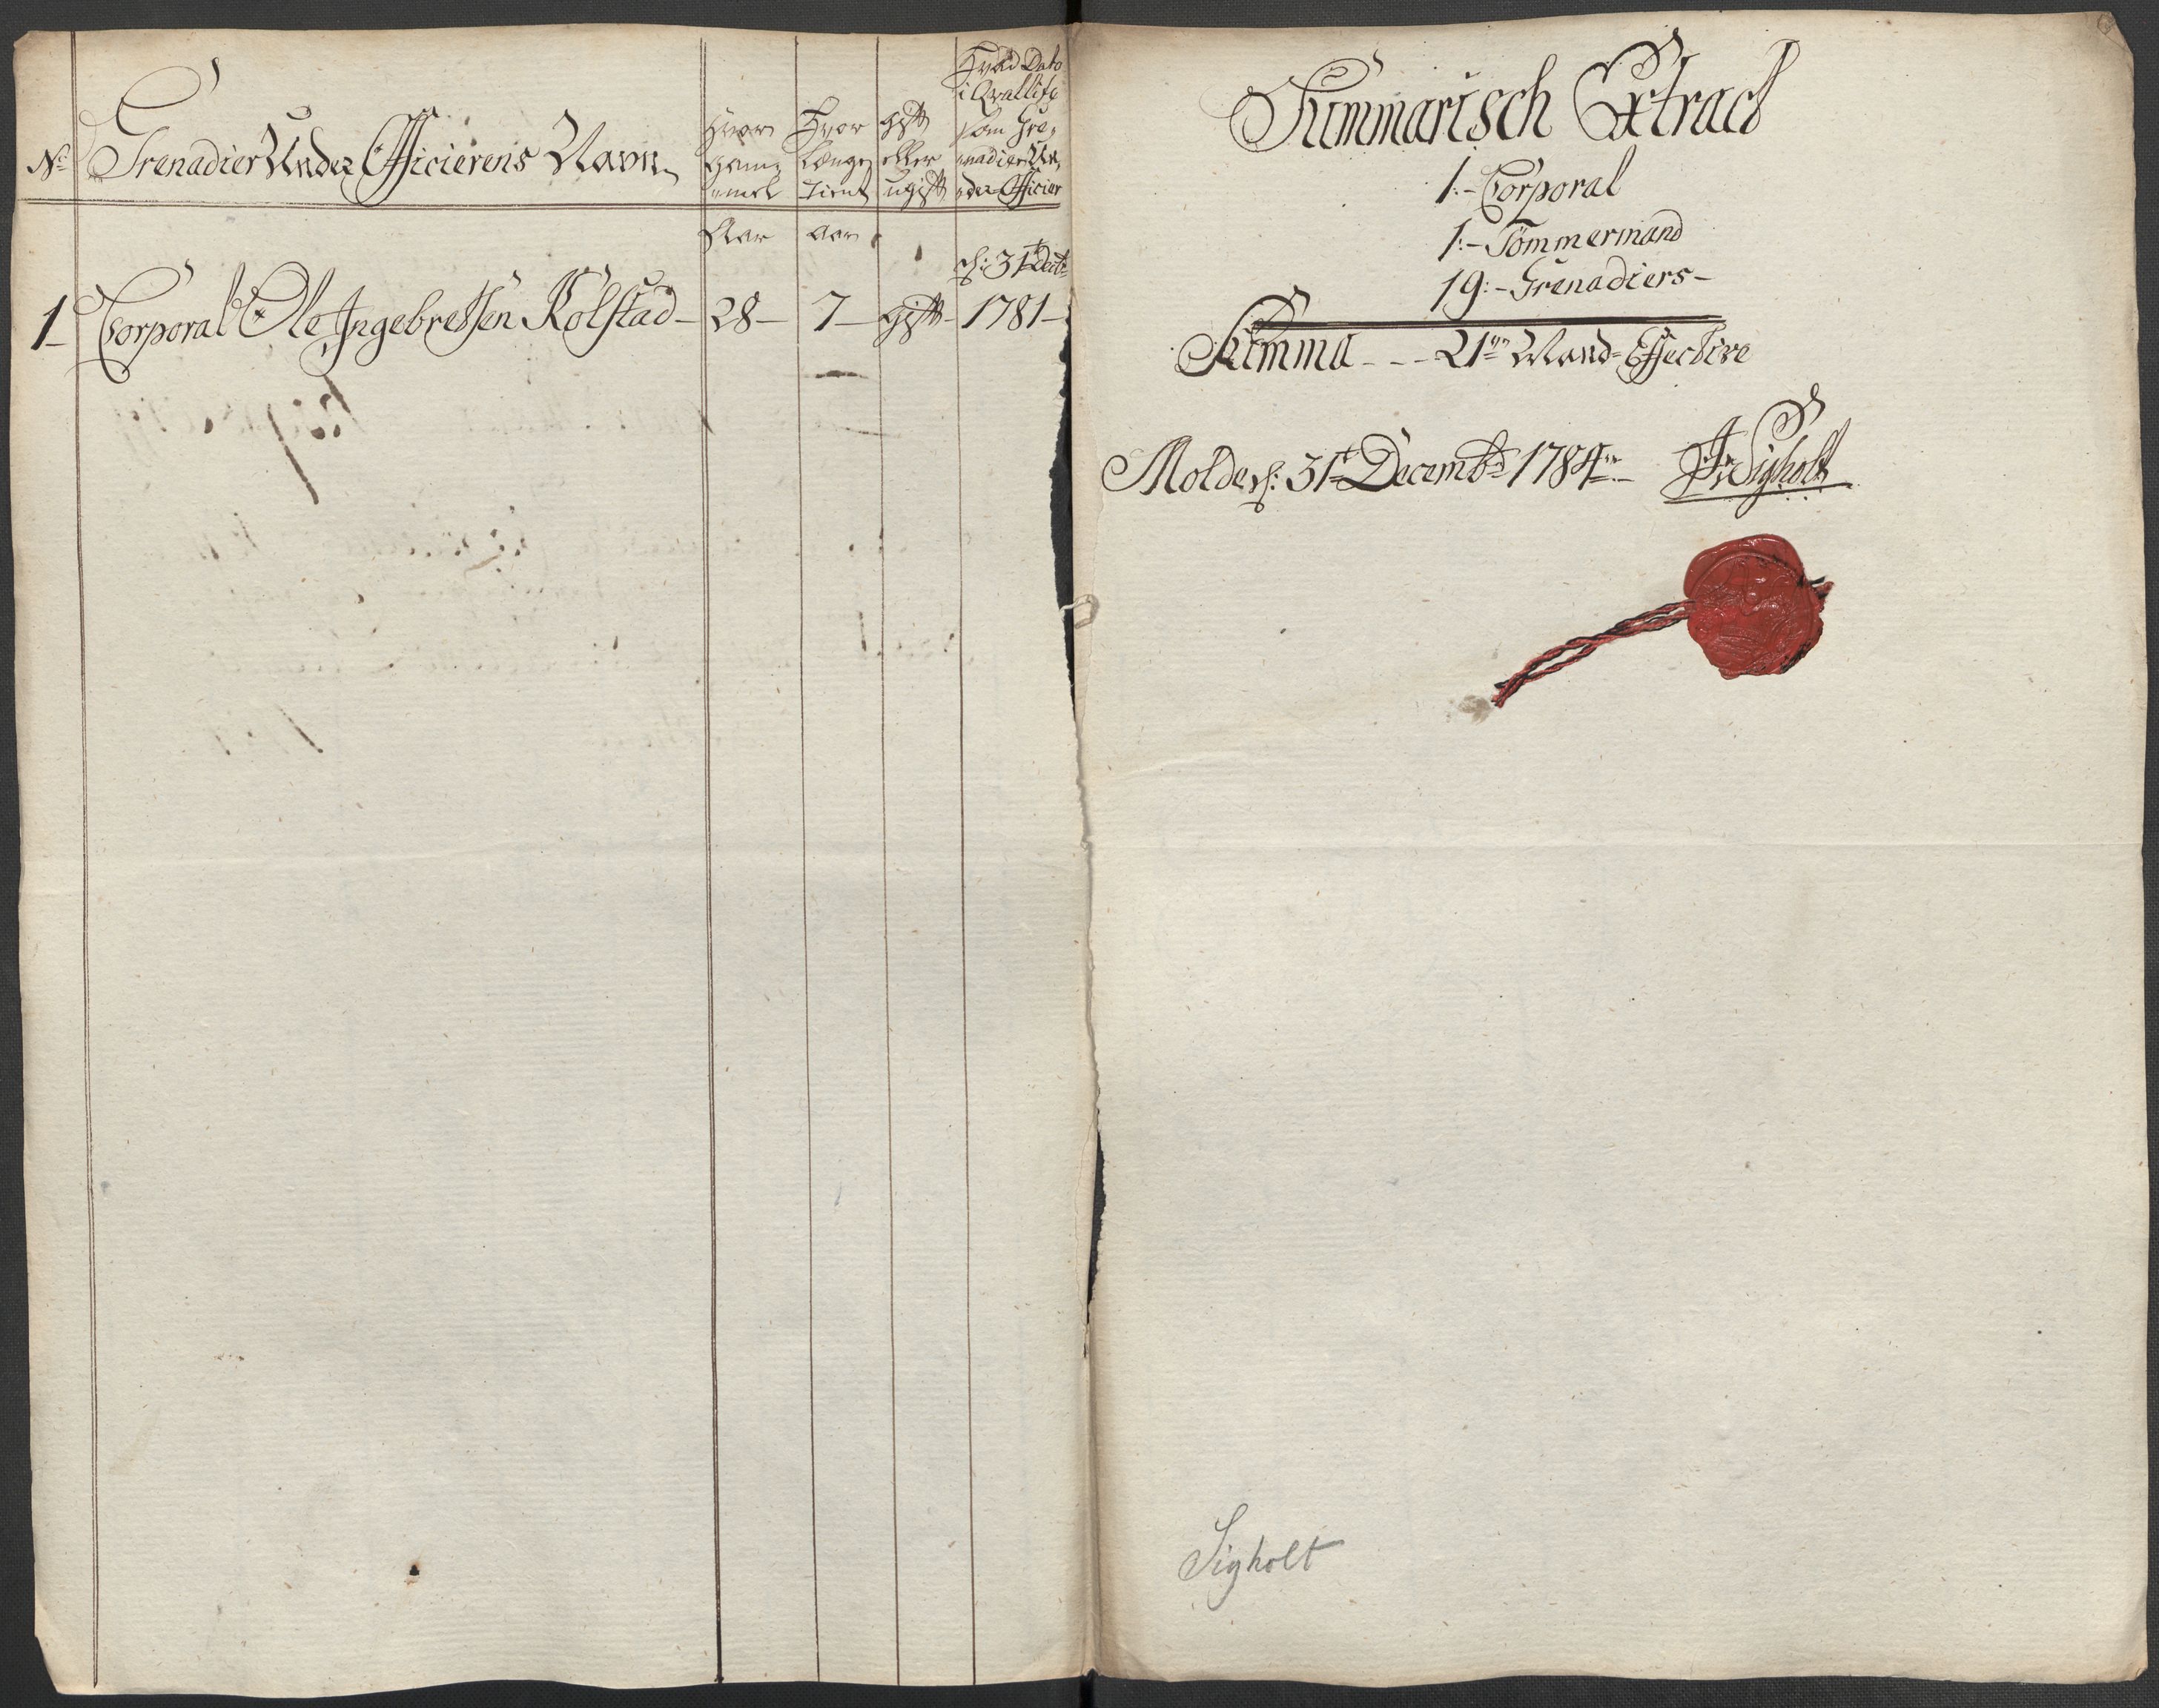 No:
Grenadier Under Officierens Navn
Hvor
gam¬
mel
Hvor
længe
tient
gift
eller
ugift
Hvad Dato
i Qvallitæ
som Gre¬
nadier Un¬
der Officier
Aar
aar
d: 31t Decbr
1
Corporal Ole Ingebretsen Kolstad
28
7
gift
1781
Summarisch Extract
1:- Corporal
1:- Tömmermand
19:- Grenadiers
Summa - - - 21 Mand Effective
Molde d: 31t Decembr 1784
J Sigholt
Sigholt